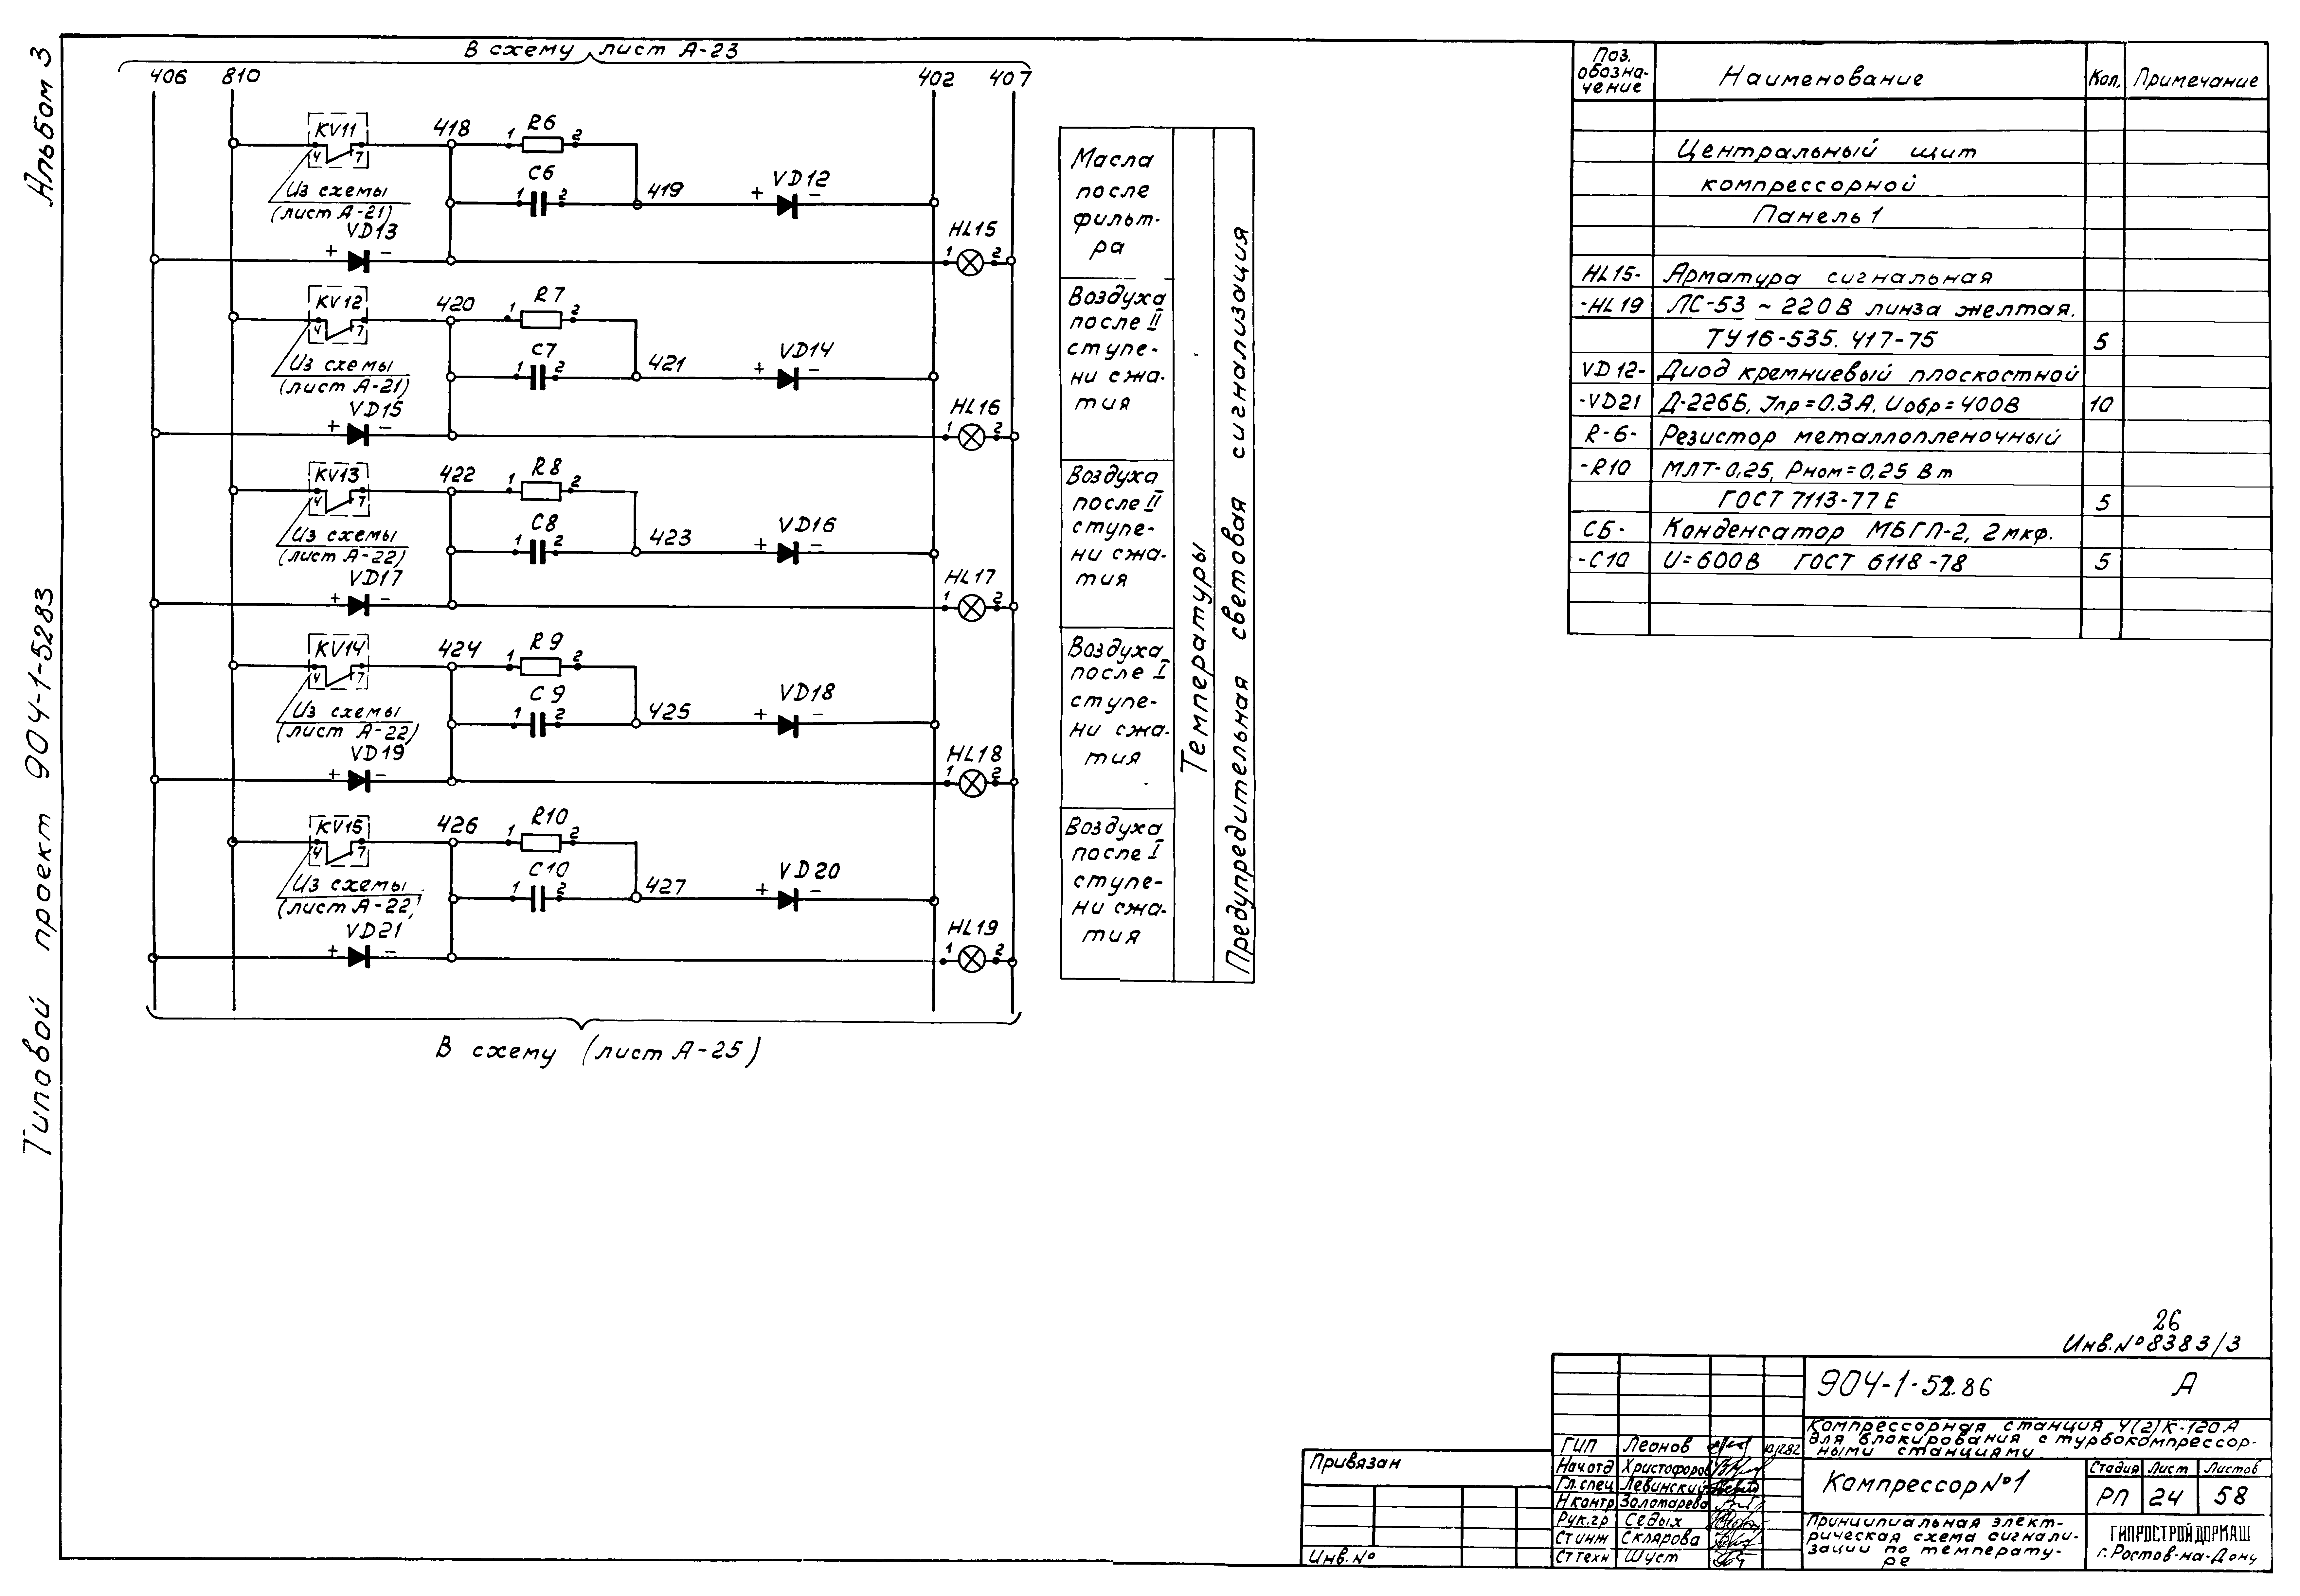 Альбом 3
Типовой проект 904-1-5283
В схему лист А-23
406 810 402 407
KV11 418 1 R6 2
4 7
Из схемы
(лист А-21)
C6
1 2 419 + VD12 -
VD13
+ - HL15
1 2
KV12 420 R7 2
4 7
Из схемы
(лист А-21)
C7
1 2 421 + VD14 -
VD15
+ - HL16
1 2
KV13 422 1 R8 2
4 7
Из схемы
(лист А-22)
C8
1 2 423 + VD16 -
VD17
+ - HL17
1 2
KV14 424 1 R9 2
4 7
Из схемы
(лист А-22)
C9
1 2 425 + VD18 -
VD19
+ - HL18
1 2
KV15 426 1 R10 2
4 7
Из схемы
(лист А-22)
C10
1 2 427 + VD20 -
VD21
+ - HL19
1 2
В схему (лист А-25)
Масла
после
фильт-
ра
Воздуха
после II
ступе-
ни сжа-
тия
Воздуха
после II
ступе-
ни сжа-
тия
Воздуха
после I
ступе-
ни сжа-
тия
Воздуха
после I
ступе-
ни сжа-
тия
Температуры
Предупредительная световая сигнализация
Поз.
обозна-
чение
Наименование Кол. Примечание
Центральный щит
компрессорной
Панель 1
HL15- Арматура сигнальная
-HL19 ЛС-53 ~ 220В линза желтая.
ТУ16-535. 417-75 5
VD12- Диод кремниевый плоскостной
-VD21 Д-226Б, Iпр=0.3А, Uобр=400В 10
R-6- Резистор металлопленочный
-R10 МЛТ-0,25, Рном=0,25 Вт
ГОСТ 7113-77Е 5
СБ- Конденсатор МБГП-2, 2мкф.
-С10 U=600В ГОСТ 6118-78 5
26
Инв.№8383/3
904-1-52.86 А
Компрессорная станция 4(2)К-120А
для блокирования с турбокомпрессор-
ными станциями
Компрессор №1
Стадия Лист Листов
РП 24 58
Принципиальная элект-
рическая схема сигнали-
зации по температу-
ре
ГИПРОСТРОЙДОРМАШ
г.Ростов-на-Дону
ГИП Леонов
Нач.отд Христофоров
Гл.спец Левинский
Н контр Золотарева
Рук.гр Седых
Ст инж Склярова
Ст техн Шуст
Привязан
Инв.№